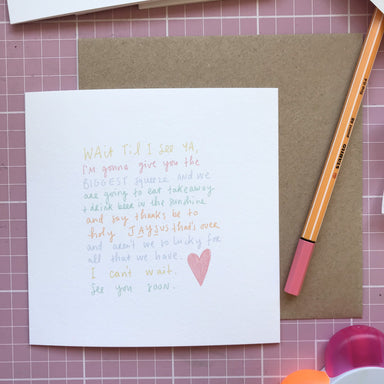 WAit Til I See YA,
I'm gonna give you the
BIGGEST squeeze and we
are going to eat takeaway
+ drink beer in the sunshine
and say thanks be to
holy JAYSUS that's over
and aren't we so lucky for
all that we have.
I can't wait.
See you soon.
STABILO